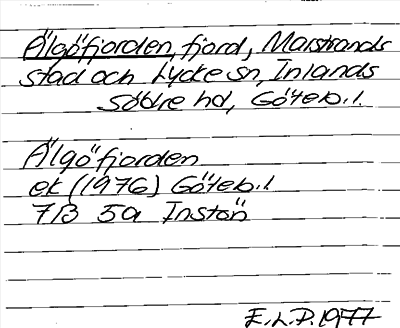 Älgöfjorden, fjord, Marstrands
stad och Lycke sn, Inlands
Södre hd, Göteb.l.
Älgöfjorden
ek (1976) Göteb.l
7B 5a Instön
E.L.P. 1977